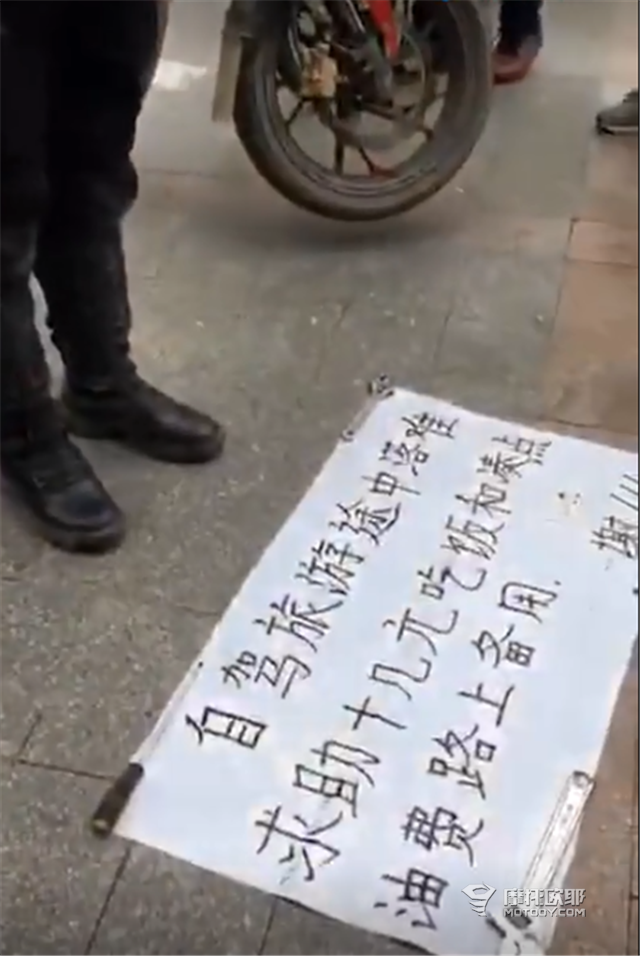 自驾旅游途中落难
求助十几元吃饭和凑点
油费路上备用.
谢
摩托欧耶
MOTOOY.COM